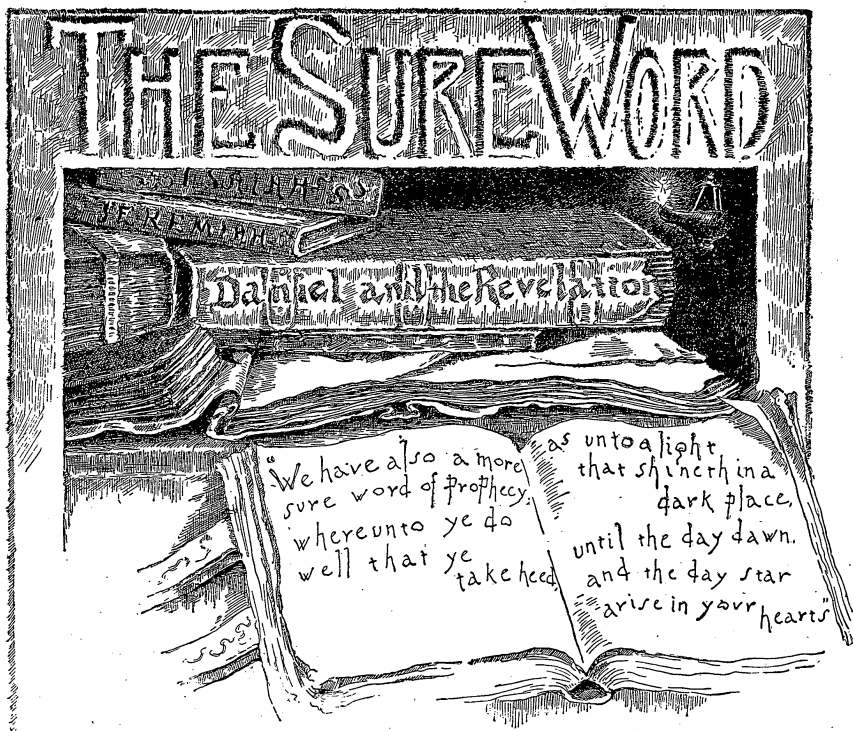 THE SURE WORD
ISAIAH
JEREMIAH
Daniel and the Revelation
"We have also a more
sure word of prophecy,
whereunto ye do
well that ye
take heed,
as unto a light
that shineth in a
dark place,
until the day dawn,
and the day star
arise in your hearts"